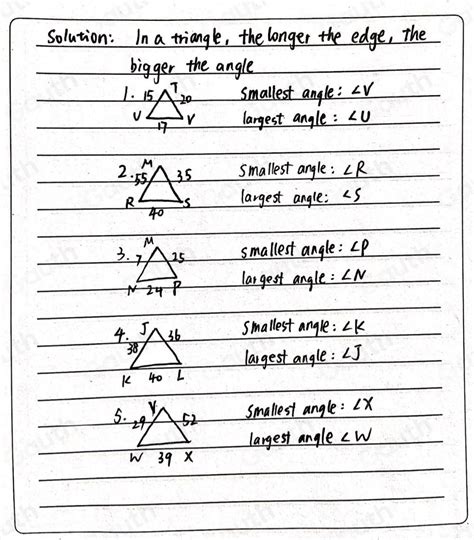 Solution: In a triangle, the longer the edge, The
bigger the angle
1. 15 T 20 Smallest angle: ∠V
U 17 V largest angle: ∠U
2. 55 M 35 Smallest angle: ∠R
R 40 S largest angle: ∠S
3. 7 M 25 smallest angle: ∠P
N 24 P largest angle: ∠N
4. 38 J 36 Smallest angle: ∠K
K 40 L largest angle: ∠J
5. 29 V 52 Smallest angle: ∠X
W 39 X largest angle ∠W